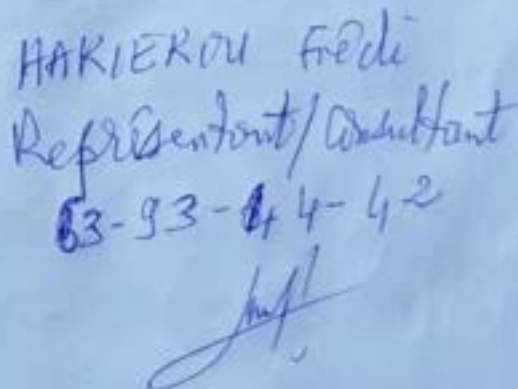 HAKIEROU Frédi
Représentant/Consultant
63-93-44-42